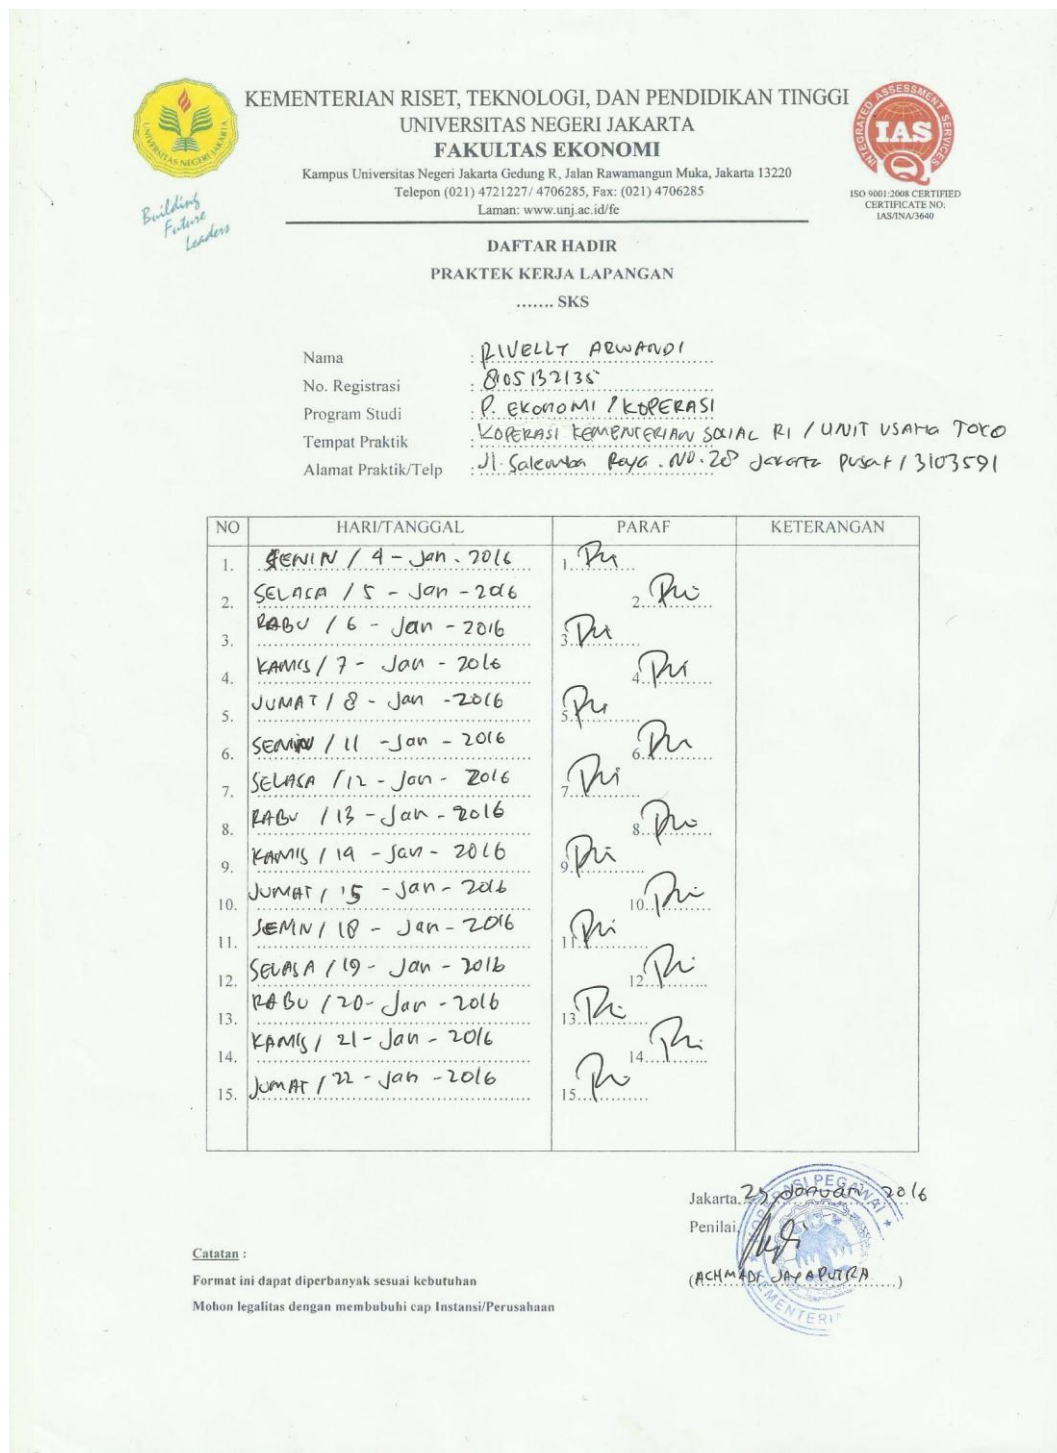 KEMENTERIAN RISET, TEKNOLOGI, DAN PENDIDIKAN TINGGI
UNIVERSITAS NEGERI JAKARTA
FAKULTAS EKONOMI
Kampus Universitas Negeri Jakarta Gedung R, Jalan Rawamangun Muka, Jakarta 13220
Telepon (021) 4721227/ 4706285, Fax: (021) 4706285
Laman: www.unj.ac.id/fe
UNIVERSITAS NEGERI JAKARTA
Building
Future
Leaders
INTEGRATED ASSESSMENT SERVICES
IAS
Q
ISO 9001:2008 CERTIFIED
CERTIFICATE NO:
IAS/INA/3640
DAFTAR HADIR
PRAKTEK KERJA LAPANGAN
....... SKS
Nama : RIVELLY ARWANDI
No. Registrasi : 8105132135
Program Studi : P. EKONOMI / KOPERASI
Tempat Praktik : KOPERASI KEMENTERIAN SOSIAL RI / UNIT USAHA TOKO
Alamat Praktik/Telp : Jl. Salemba Raya . NO. 28 Jakarta Pusat / 3103591
NO HARI/TANGGAL PARAF KETERANGAN
1. SENIN / 4 - Jan - 2016 1.
2. SELASA / 5 - Jan - 2016 2.
3. RABU / 6 - Jan - 2016 3.
4. KAMIS / 7 - Jan - 2016 4.
5. JUMAT / 8 - Jan - 2016 5.
6. SENIN / 11 - Jan - 2016 6.
7. SELASA / 12 - Jan - 2016 7.
8. RABU / 13 - Jan - 2016 8.
9. KAMIS / 14 - Jan - 2016 9.
10. JUMAT / 15 - Jan - 2016 10.
11. SENIN / 18 - Jan - 2016 11.
12. SELASA / 19 - Jan - 2016 12.
13. RABU / 20 - Jan - 2016 13.
14. KAMIS / 21 - Jan - 2016 14.
15. JUMAT / 22 - Jan - 2016 15.
Jakarta, Januari 2016
Penilai,
(ACHMADI JAYAPUTRA)
KOPERASI PEGAWAI
Catatan :
Format ini dapat diperbanyak sesuai kebutuhan
Mohon legalitas dengan membubuhi cap Instansi/Perusahaan